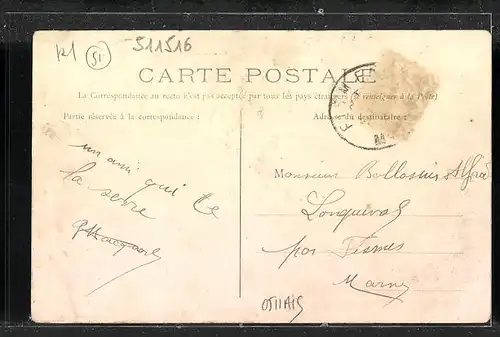 51
511516
CARTE POSTALE
La Correspondance au recto n'est pas acceptée par tous les pays étrangers (Se renseigner à la Poste)
Partie réservée à la correspondance :
Adresse du destinataire :
un ami qui te
la serre
Monsieur
Longueval
par Fismes
Marne